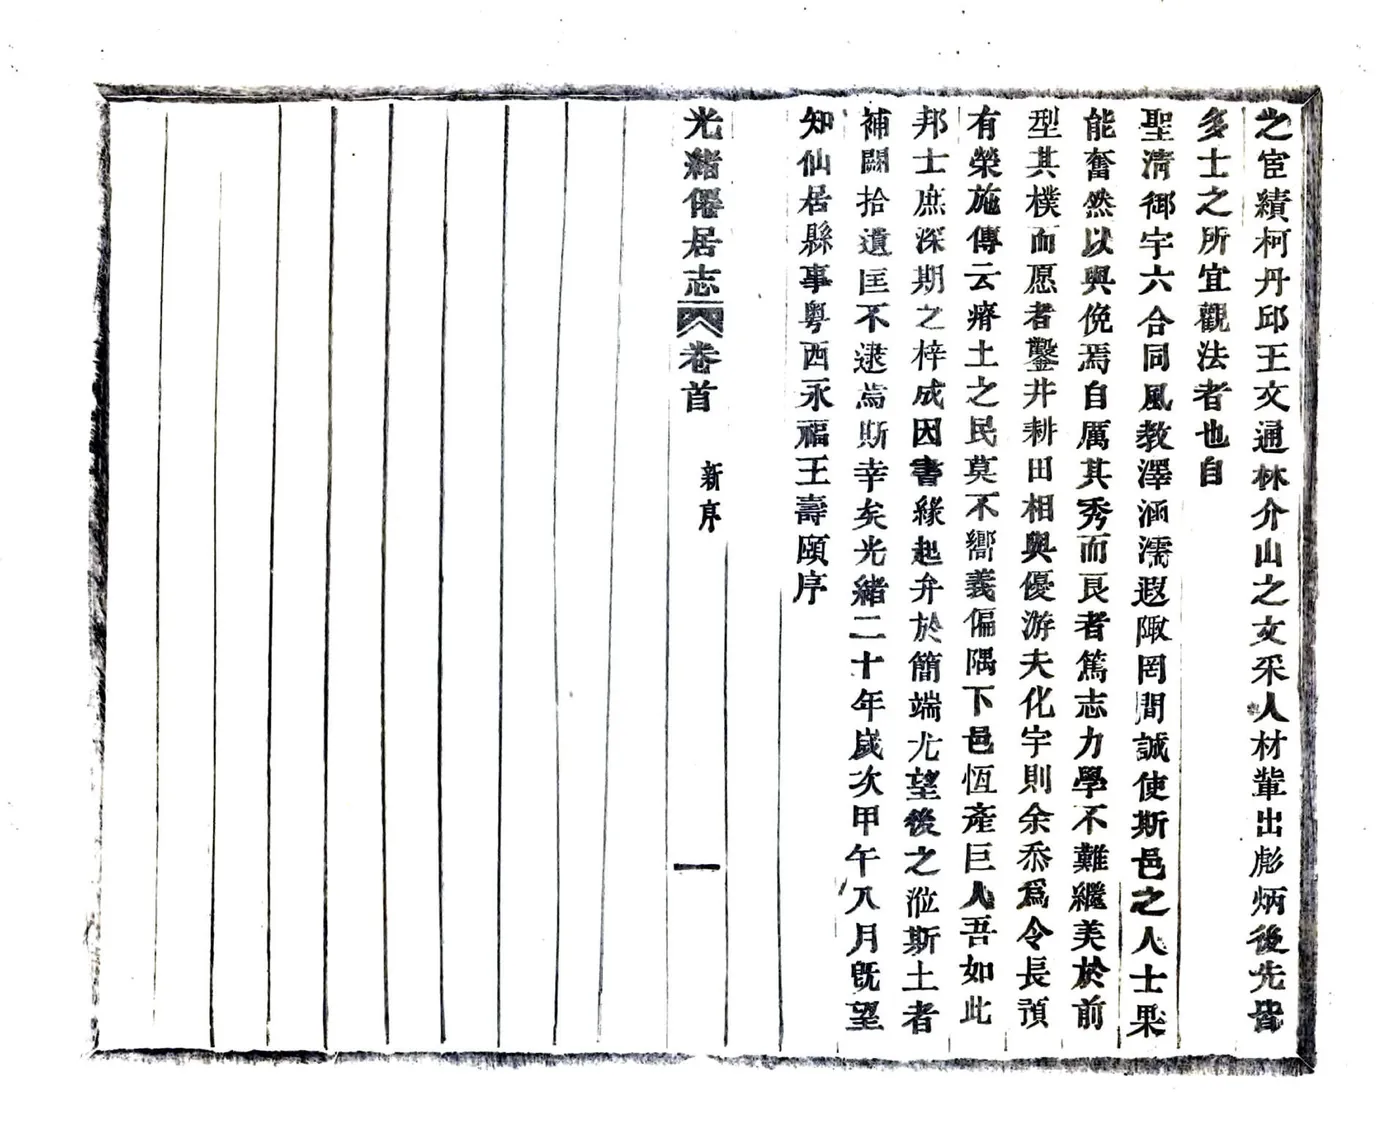 之宦績柯丹邱王文通林介山之文采人材輩出彪炳後先皆
多士之所宜觀法者也自
聖淸御宇六合同風敎澤涵濡遐陬罔間誠使斯邑之人士果
能奮然以興俛焉自厲其秀而良者篤志力學不難繼美於前
型其樸而愿者鑿井耕田相與優游夫化宇則余忝爲令長預
有榮施傳云瘠土之民莫不嚮義偏隅下邑恆產巨人吾如此
邦士庶深期之梓成因書緣起弁於簡端尤望後之涖斯土者
補闕拾遺匡不逮焉斯幸矣光緒二十年歲次甲午八月旣望
知仙居縣事粵西永福王壽頤序
光緖僊居志 卷首 新序 一